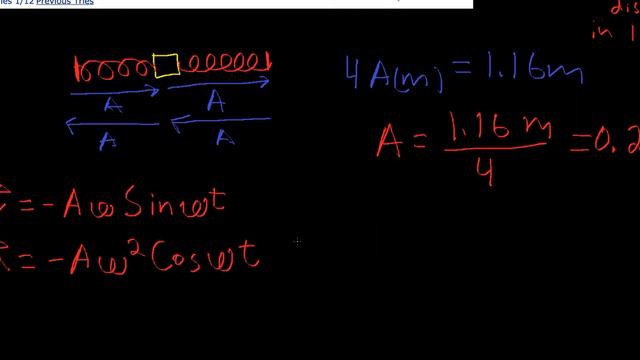 1/12 Previous Tries
in 1
A A
A A
4A(m) = 1.16m
A = 1.16 m / 4 = 0.2
= -Aω Sinωt
= -Aω² Cosωt